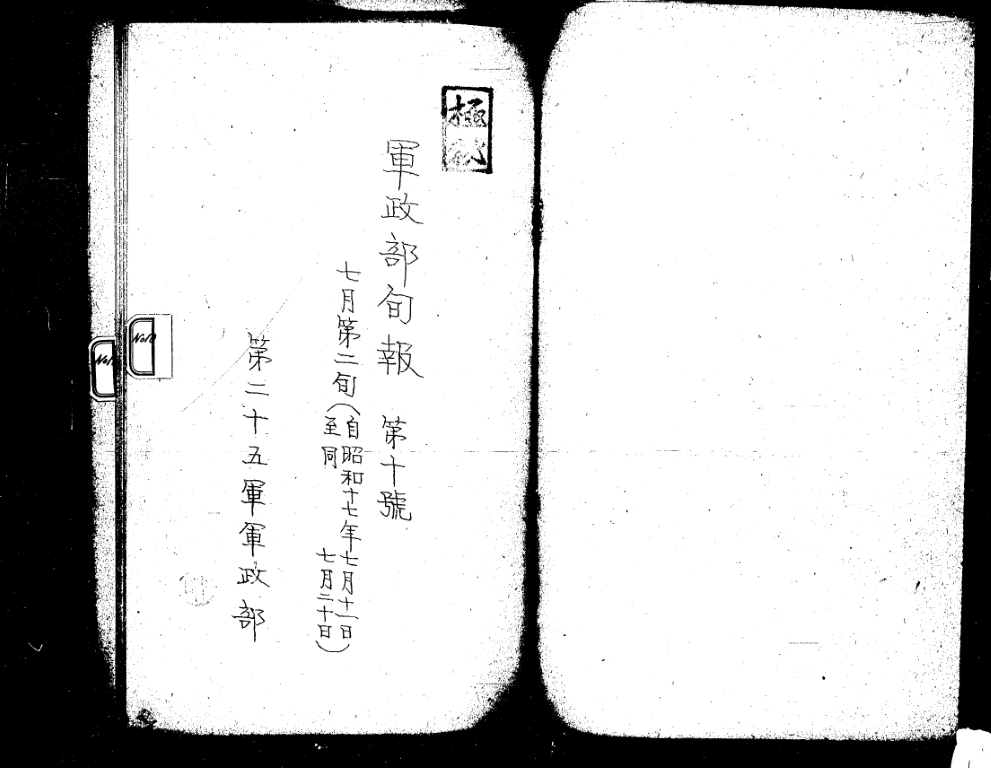 極秘
軍政部旬報 第十號
七月第二旬(自昭和十七年七月十一日
至同 七月二十日)
第二十五軍軍政部
No10
No10